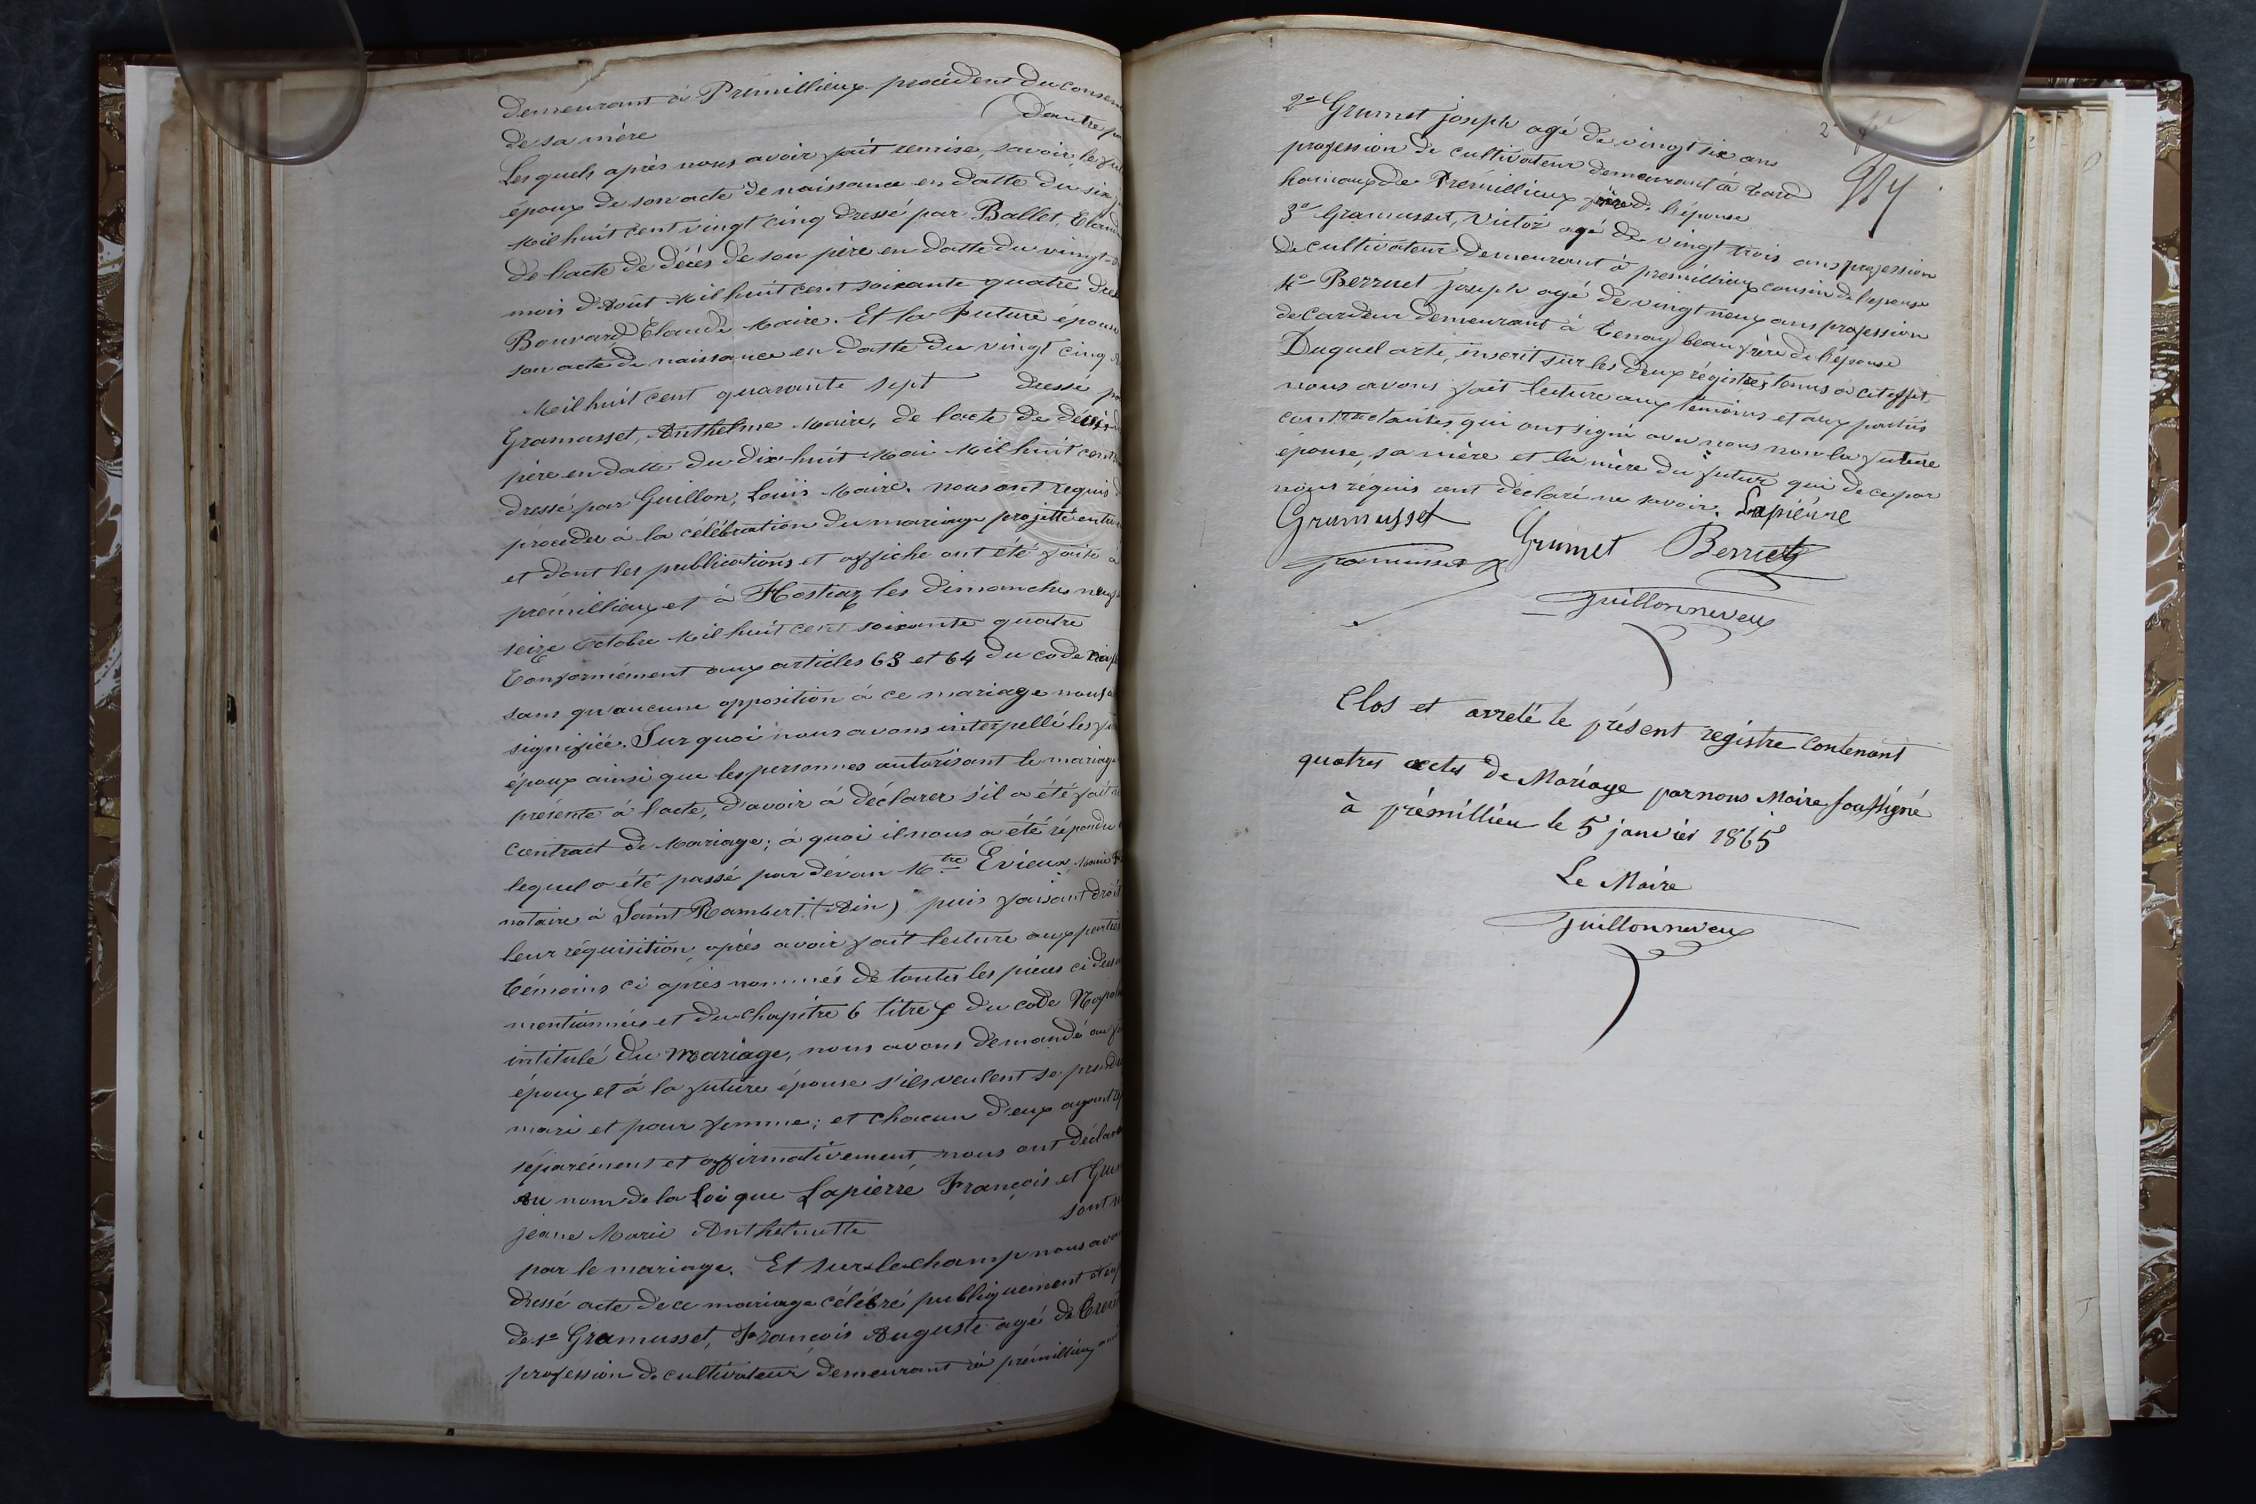 demeurant à Prémillieux procédent du consen
(d'autre par
de sa mère
Lesquels après nous avoir fait remise, savoir, le fut
époux de son acte de naissance en datte du six
Mil huit cent vingt cinq dressé par Ballet, Claud
de l'acte de décès de son père en datte du vingt
mois d'Août Mil huit cent soixante quatre
Bouvard Claude Maire. Et la future épouse
son acte de naissance en datte du vingt cinq
Mil huit cent quarante sept dressé p
Gramusset, Anthelme Maire, de l'acte de décès
père en datte du dix huit Mai Mil huit cent
dressé par Guillon, Louis Maire. nous ont requis
procéder à la célébration du mariage projetté entr
et dont les publications et affiche ont été faite à
prémillieux et à Hostiaz les dimanches neuf
seize Octobre Mil huit cent soixante quatre
Conformément aux articles 63 et 64 du code
sans qu'aucune opposition à ce mariage nous
signifiée. Sur quoi nous avons interpellé les fu
époux ainsi que les personnes autorisant le mariage
présente à l'acte, d'avoir à déclarer s'il a été fait
contrait de Mariage; à quoi il nous a été répondu
lequel a été passé par dévan Mtre Evieux,
notaire à Saint Rambert (Ain) puis faisant droit
leur réquisition, après avoir fait lecture aux parties
témoins ci après nommés de toutes les pièces ci dess
mentionnées et du chapitre 6 titre 5 du code Napol
intitulé du Mariage, nous avons demandé au fu
époux et à la future épouse s'ils veulent se prendr
mari et pour femme; et chacun d'eux ayant
séparément et affirmativement, nous ont déclar
Au nom de la Loi que Lapierre François et Gru
jeane Marie Anthelmette sont
par le mariage. Et sur le champ nous avo
dressé acte de ce mariage célébré publiquement
de 1º Gramusset, François Auguste agé de
profession de cultivateur demeurant à prémillieux
2º Grumet joseph agé de vingt six ans
profession de cultivateur demeurant à
hameaux de Prémillieux frère de l'épouse
3º Gramusset, Victor agé de vingt trois ans profession
de cultivateur demeurant à prémillieux cousin de l'épouse
4º Berruet joseph agé de vingt neuf ans profession
de cardeur demeurant à Tenay beau frère de l'épouse
Duquel acte, inscrit sur les deux régistres tenus à cet effet
nous avons fait lecture aux témoins et aux parties
contractantes qui ont signé avec nous non la future
épouse, sa mère et la mère du futur qui de ce par
nous réquis ont déclaré ne savoir. Lapierre
Gramusset Grumet Berruet
gramusset
Guillon neveux
Clos et arreté le présent registre contenant
quatres actes de Mariage par nous Maire soussigné
à prémillieu le 5 janvier 1865
Le Maire
Guillon neveux